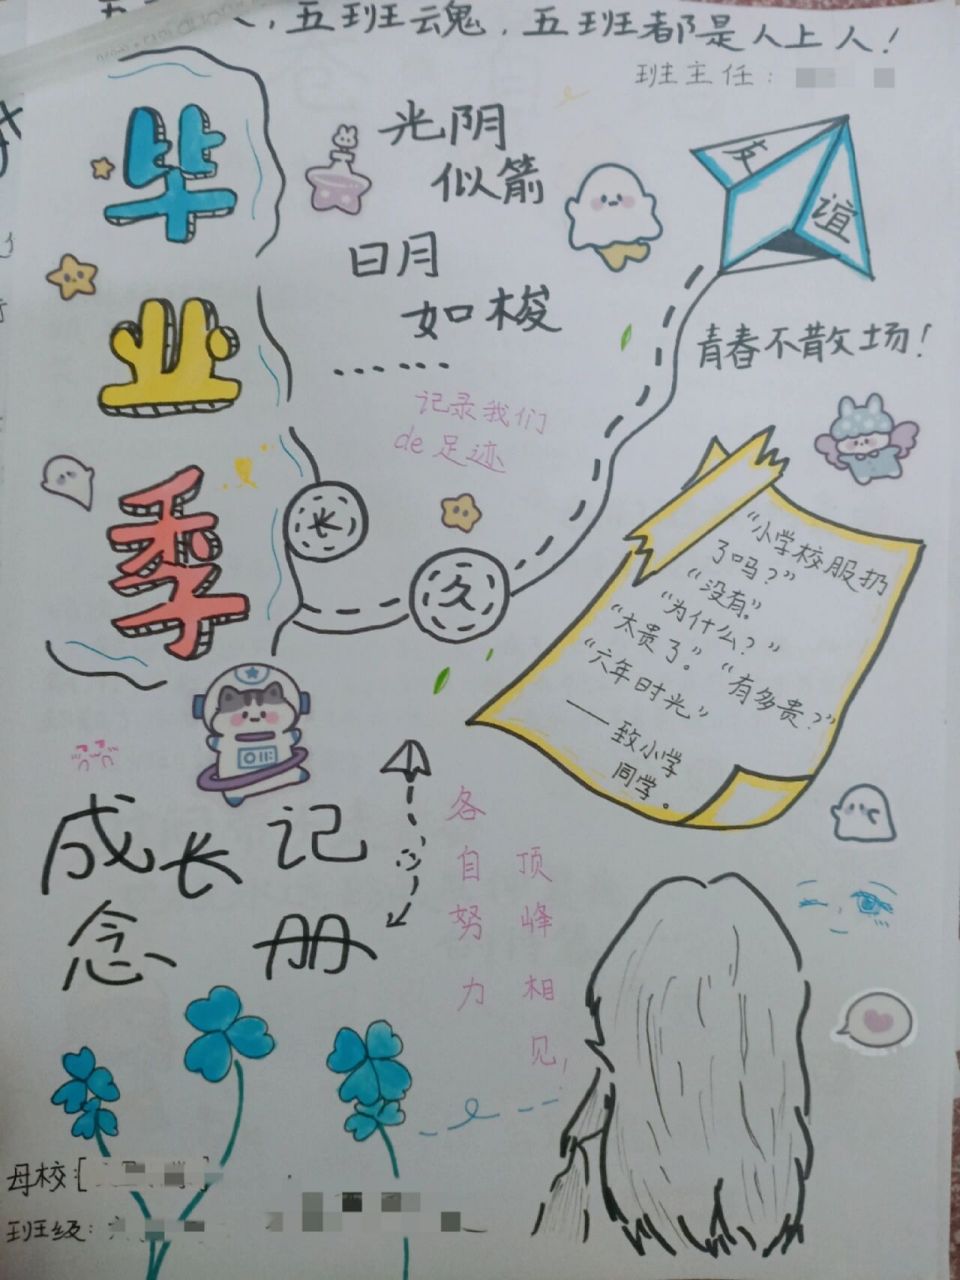 五班云魂，五班都是人上人！
班主任：
毕
业
季
光阴
似箭
日月
如梭
……
友
谊
青春不散场！
记录我们
de足迹
长
久
“小学校服扔
了吗？”
“没有。”
“为什么？”
“太贵了。”“有多贵？”
“六年时光”
——致小学
同学。
成长记
念册
各
自
努
力
顶
峰
相
见，
母校：
班级：